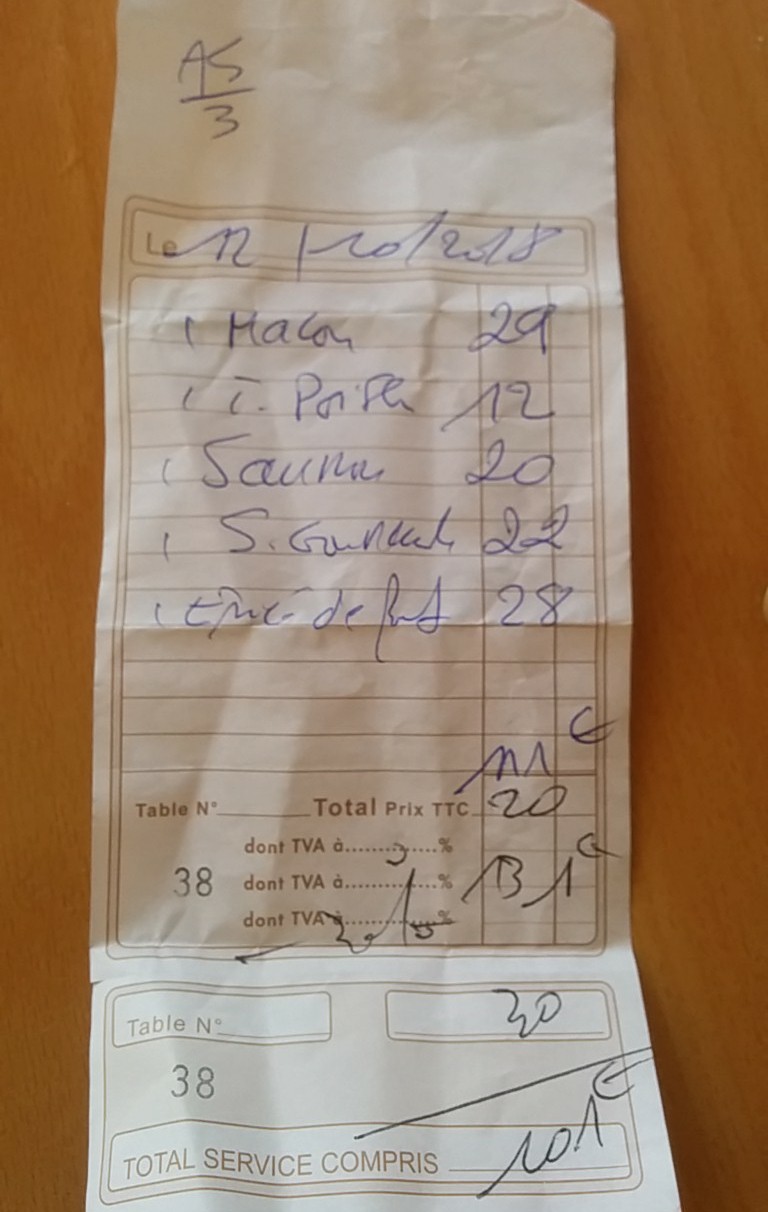 AS
3
Le 12/10/2018
1 Macon 29
1 T. Poisson 12
1 Saumon 20
1 S. 22
1 de 28
111 €
Table N° Total Prix TTC 20
dont TVA à ........ %
38 dont TVA à ........ % 131 €
dont TVA à ........ %
Table N° 30
38
101 €
TOTAL SERVICE COMPRIS